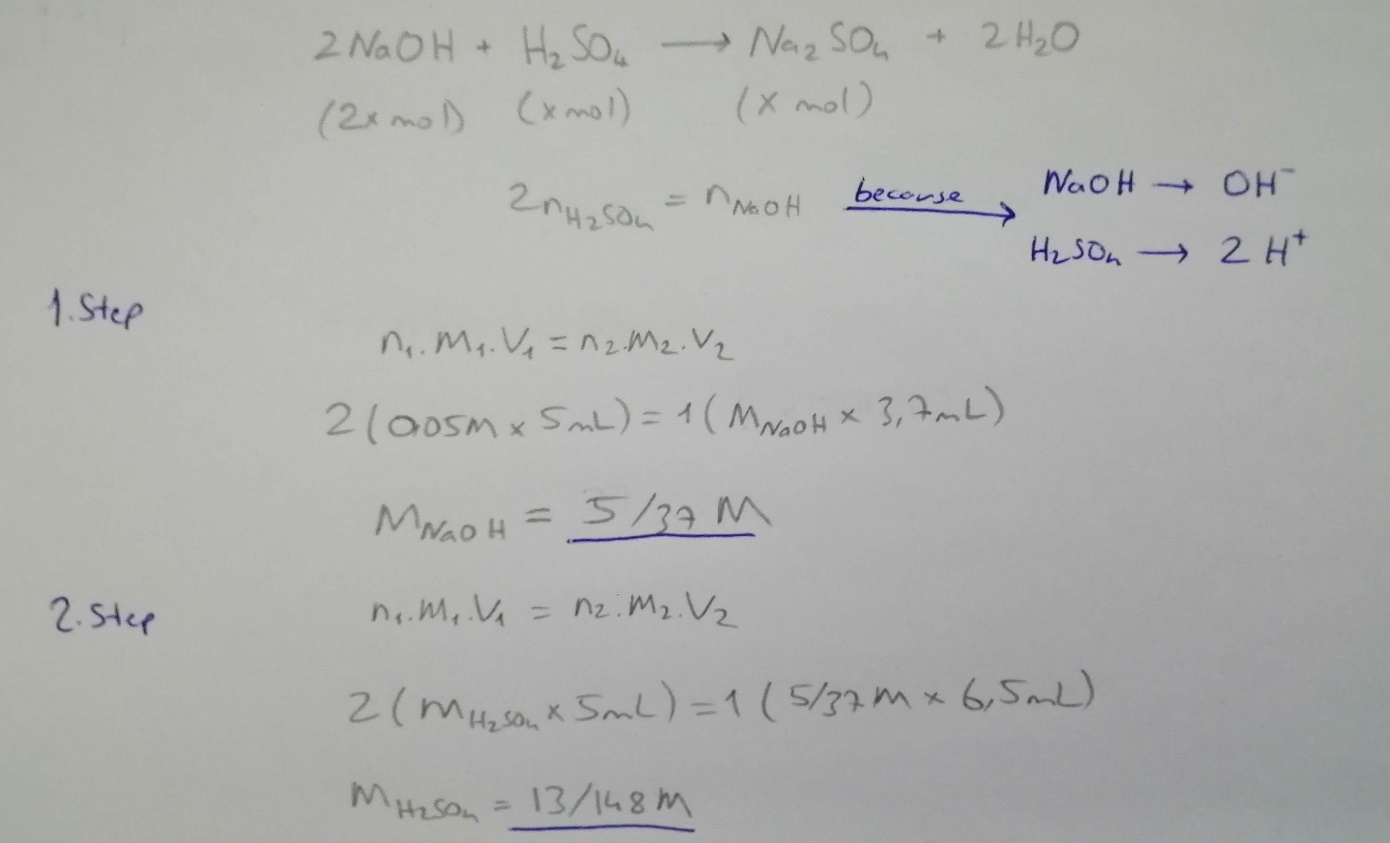 2NaOH + H₂SO₄ → Na₂SO₄ + 2H₂O
(2x mol) (x mol) (x mol)
2n H₂SO₄ = n NaOH because → NaOH → OH⁻
H₂SO₄ → 2 H⁺
1. Step
n₁.M₁.V₁ = n₂.M₂.V₂
2(0.05M x 5mL) = 1(M NaOH x 3,7mL)
M NaOH = 5/37 M
2. Step n₁.M₁.V₁ = n₂.M₂.V₂
2(M H₂SO₄ x 5mL) = 1(5/37M x 6,5mL)
M H₂SO₄ = 13/148M